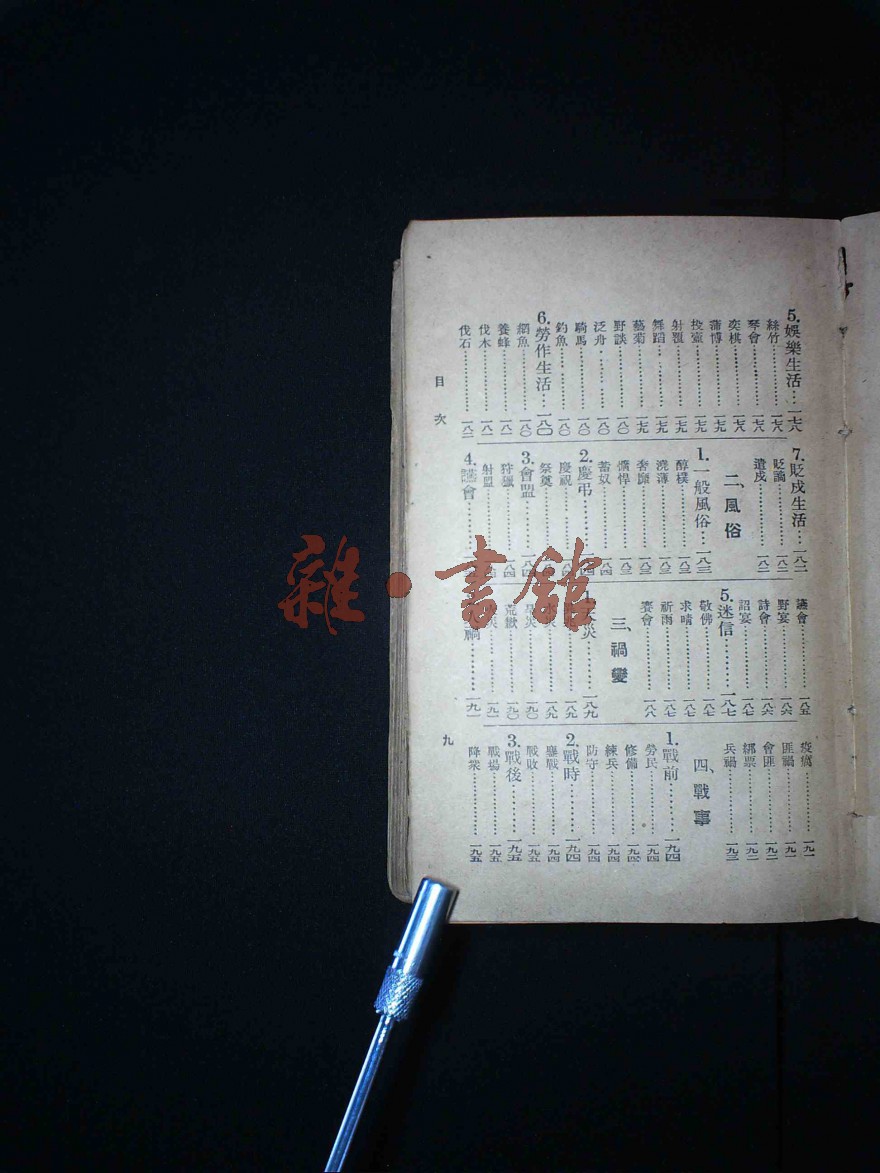 5.娛樂生活…一七六
絲竹…一七八
琴會…一七八
奕棋…一七八
蒲博…一七九
投壺…一七九
射覆…一七九
舞蹈…一七九
藝菊…一七九
野談…一八〇
泛舟…一八〇
騎馬…一八〇
釣魚…一八〇
6.勞作生活…一八〇
網魚…一八〇
養蜂…一八一
伐木…一八一
伐石…一八二
7.貶戍生活…一八二
貶謫…一八二
遣戍…一八二
二、風俗
1.一般風俗…一八三
醇樸…一八三
澆薄…一八三
奢靡…一八三
獷悍…一八三
蓄奴
2.慶弔
慶祝
祭奠
3.會盟
狩獵
射盟
4.讌會
讌會…一八五
野宴…一八六
詩會…一八六
詔宴…一八七
5.迷信…一八七
敬佛…一八七
求晴…一八七
祈雨…一八七
賽會…一八八
三、禍變
一八九
一八九
一八九
一九〇
荒歉…一九〇
一九一
一九一
疫癘…一九一
匪禍…一九一
會匪…一九二
綁票…一九二
兵禍…一九三
四、戰事
1.戰前…一九四
勞民…一九四
修備…一九四
練兵…一九四
防守…一九四
2.戰時…一九四
鏖戰…一九四
戰敗…一九五
3.戰後…一九五
戰場…一九五
降衆…一九五
目次
九
雜·書館